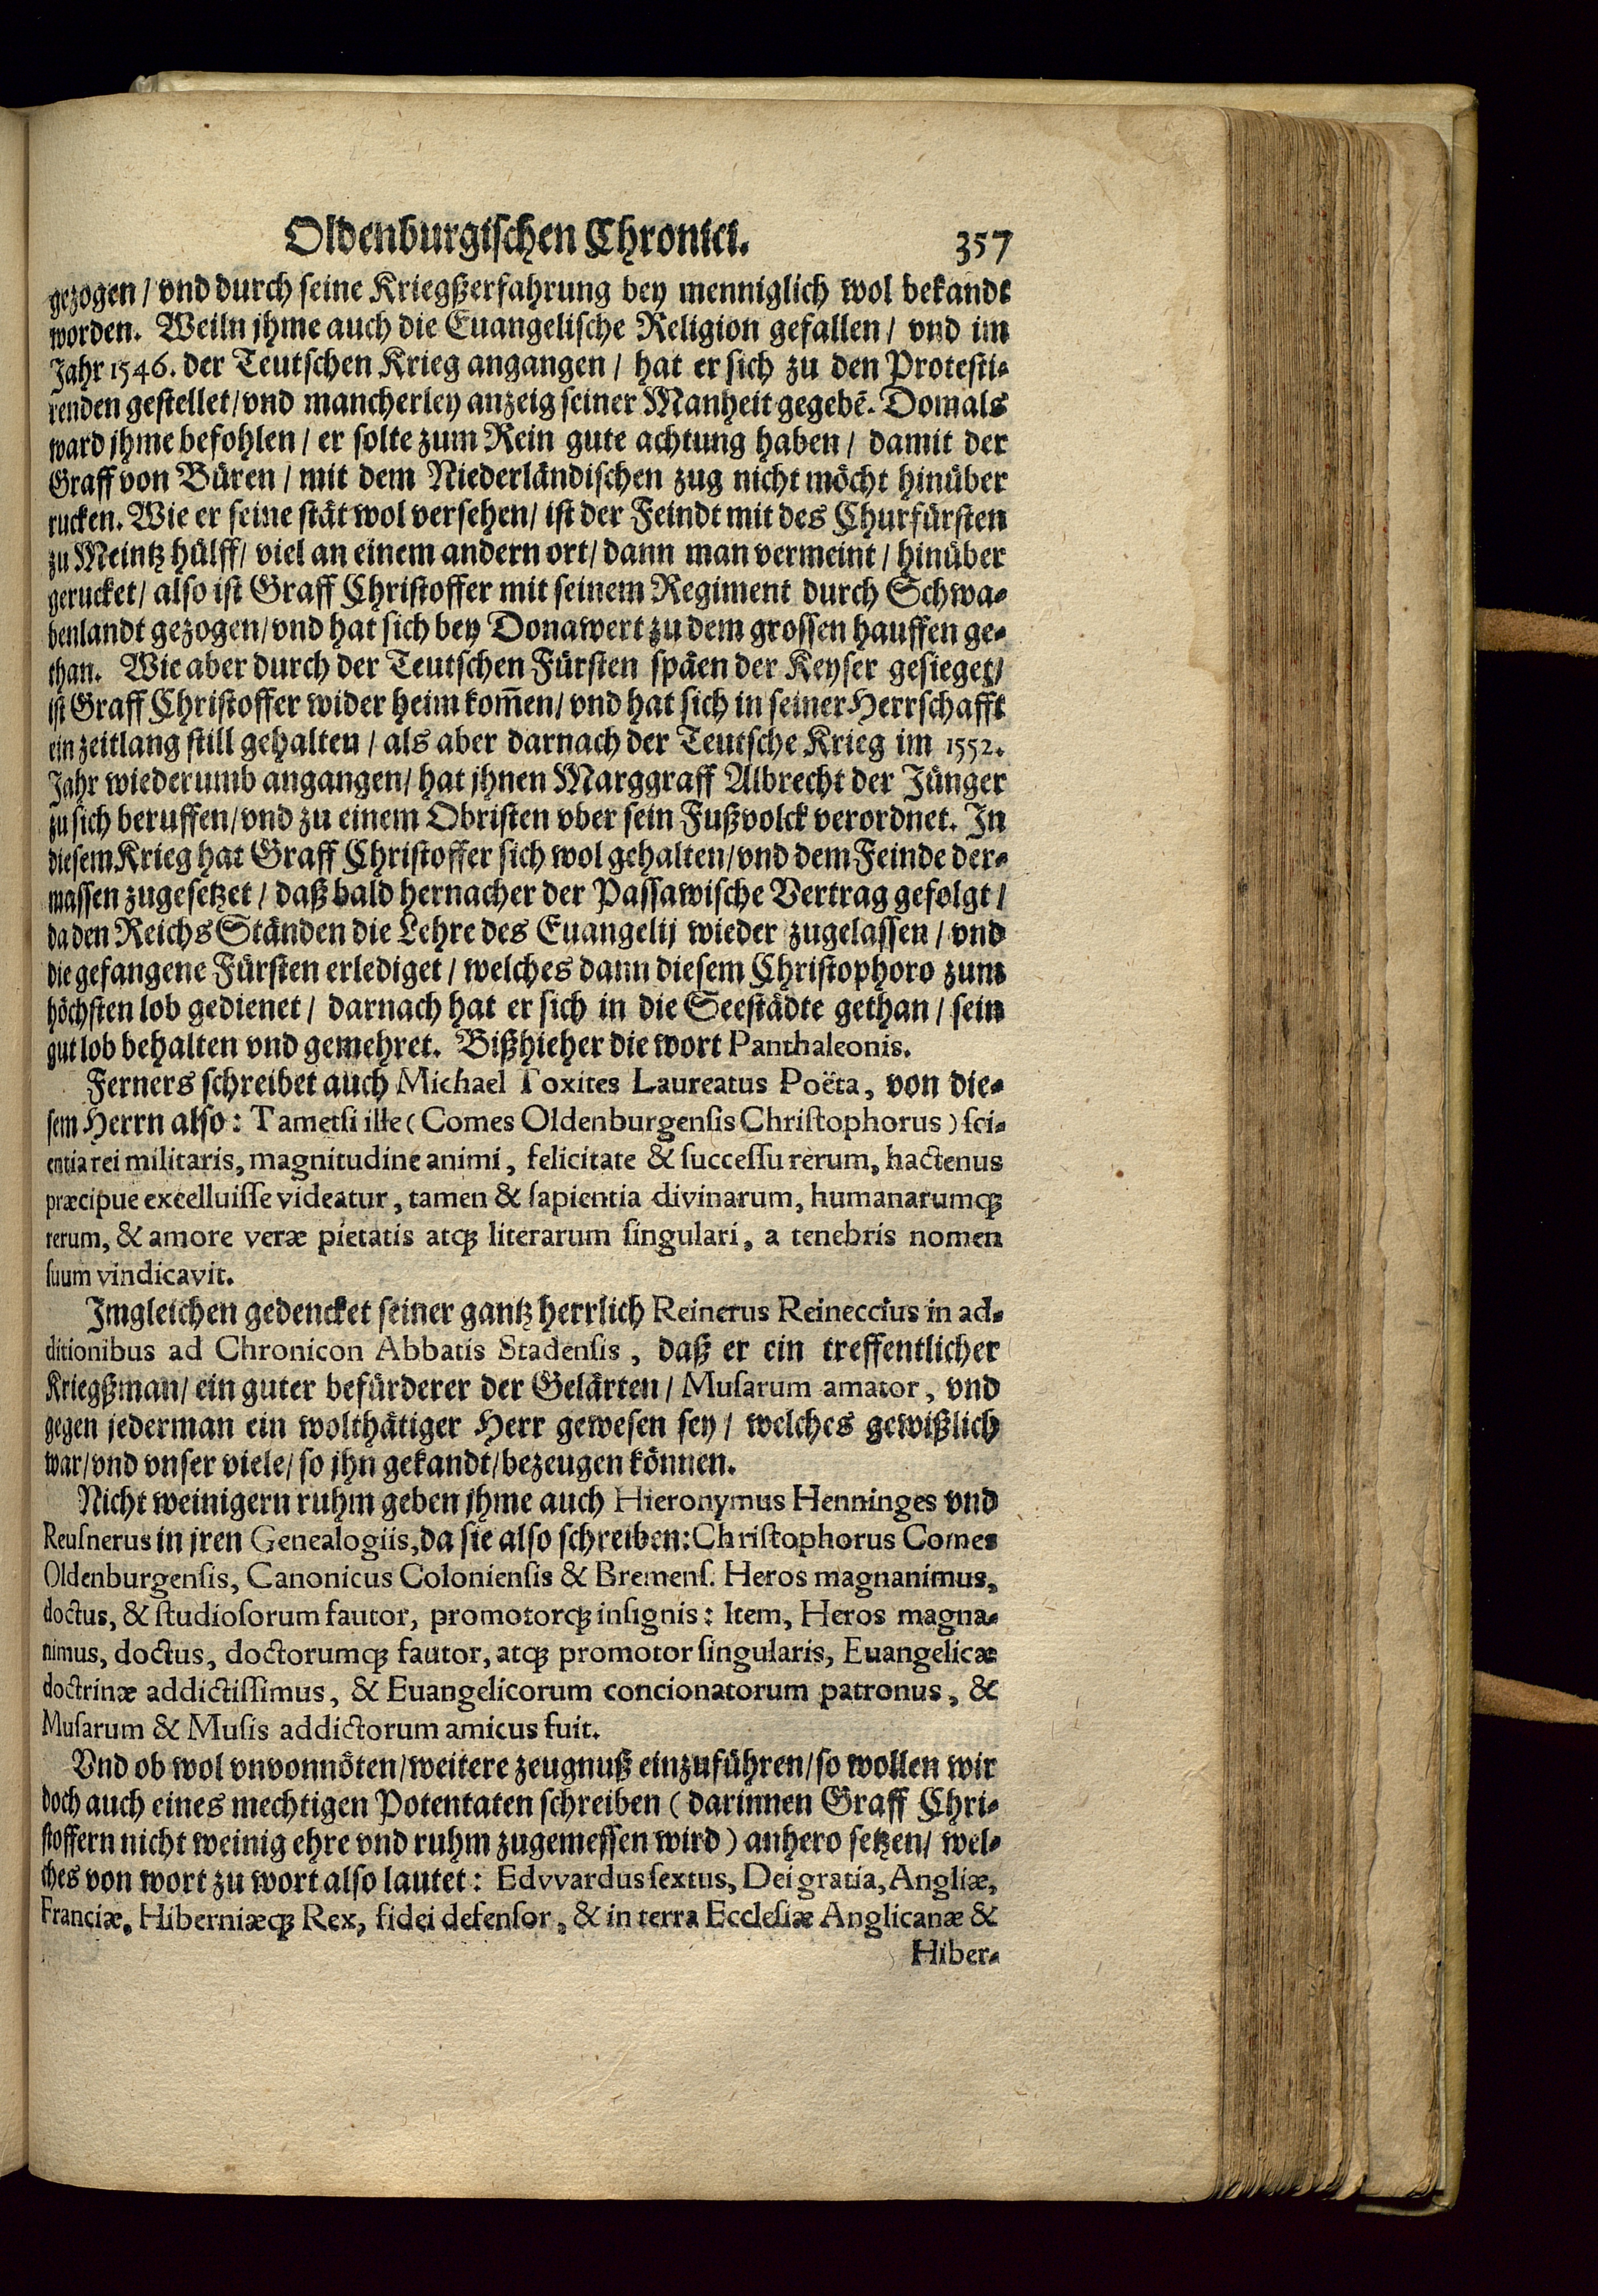 Oldenburgischen Chronici. 357
gezogen/ vnd durch seine Kriegßerfahrung bey menniglich wol bekandt
worden. Weiln jhme auch die Euangelische Religion gefallen/ vnd im
Jahr 1546. der Teutschen Krieg angangen/ hat er sich zu den Protesti-
renden gestellet/ vnd mancherley anzeig seiner Manheit gegebē. Domals
ward jhme befohlen/ er solte zum Rein gute achtung haben/ damit der
Graff von Büren/ mit dem Niederländischen zug nicht möcht hinüber
rucken. Wie er seine stät wol versehen/ ist der Feindt mit des Churfürsten
zu Meintz hülff/ viel an einem andern ort/ dann man vermeint/ hinüber
gerucket/ also ist Graff Christoffer mit seinem Regiment durch Schwa-
benlandt gezogen/ vnd hat sich bey Donawert zu dem grossen hauffen ge-
than. Wie aber durch der Teutschen Fürsten späen der Keyser gesieget/
ist Graff Christoffer wider heim kom̄en/ vnd hat sich in seiner Herrschafft
ein zeitlang still gehalten/ als aber darnach der Teutsche Krieg im 1552.
Jahr wiederumb angangen/ hat jhnen Marggraff Albrecht der Jünger
zu sich beruffen/ vnd zu einem Obristen vber sein Fußvolck verordnet. In
diesem Krieg hat Graff Christoffer sich wol gehalten/ vnd dem Feinde der-
massen zugesetzet/ daß bald hernacher der Passawische Vertrag gefolgt/
da den Reichs Ständen die Lehre des Euangelij wieder zugelassen/ vnd
die gefangene Fürsten erlediget/ welches dann diesem Christophoro zum
höchsten lob gedienet/ darnach hat er sich in die Seestädte gethan/ sein
gut lob behalten vnd gemehret. Bißhieher die wort Panthaleonis.
Ferners schreibet auch Michael Toxites Laureatus Poëta, von die-
sem Herrn also: Tametsi ille (Comes Oldenburgensis Christophorus) sci-
entia rei militaris, magnitudine animi, felicitate & successu rerum, hactenus
præcipue excelluisse videatur, tamen & sapientia divinarum, humanarumq́;
rerum, & amore veræ pietatis atq; literarum singulari, a tenebris nomen
suum vindicavit.
Imgleichen gedencket seiner gantz herrlich Reinerus Reineccius in ad-
ditionibus ad Chronicon Abbatis Stadensis, daß er ein treffentlicher
Kriegßman/ ein guter befürderer der Gelärten/ Musarum amator, vnd
gegen jederman ein wolthätiger Herr gewesen sey/ welches gewißlich
war/ vnd vnser viele/ so jhn gekandt/ bezeugen können.
Nicht weinigern ruhm geben jhme auch Hieronymus Henninges vnd
Reusnerus in jren Genealogiis, da sie also schreiben: Christophorus Comes
Oldenburgensis, Canonicus Coloniensis & Bremens. Heros magnanimus,
doctus, & studiosorum fautor, promotorq; insignis: Item, Heros magna-
nimus, doctus, doctorumq; fautor, atq; promotor singularis, Euangelicæ
doctrinæ addictissimus, & Euangelicorum concionatorum patronus, &
Musarum & Musis addictorum amicus fuit.
Vnd ob wol vnvonnöten/ weitere zeugnuß einzuführen/ so wollen wir
doch auch eines mechtigen Potentaten schreiben (darinnen Graff Chri-
stoffern nicht weinig ehre vnd ruhm zugemessen wird) anhero setzen/ wel-
ches von wort zu wort also lautet: Edvvardus sextus, Dei gratia, Angliæ,
Franciæ, Hiberniæq; Rex, fidei defensor, & in terra Ecclesiæ Anglicanæ &
Hiber-